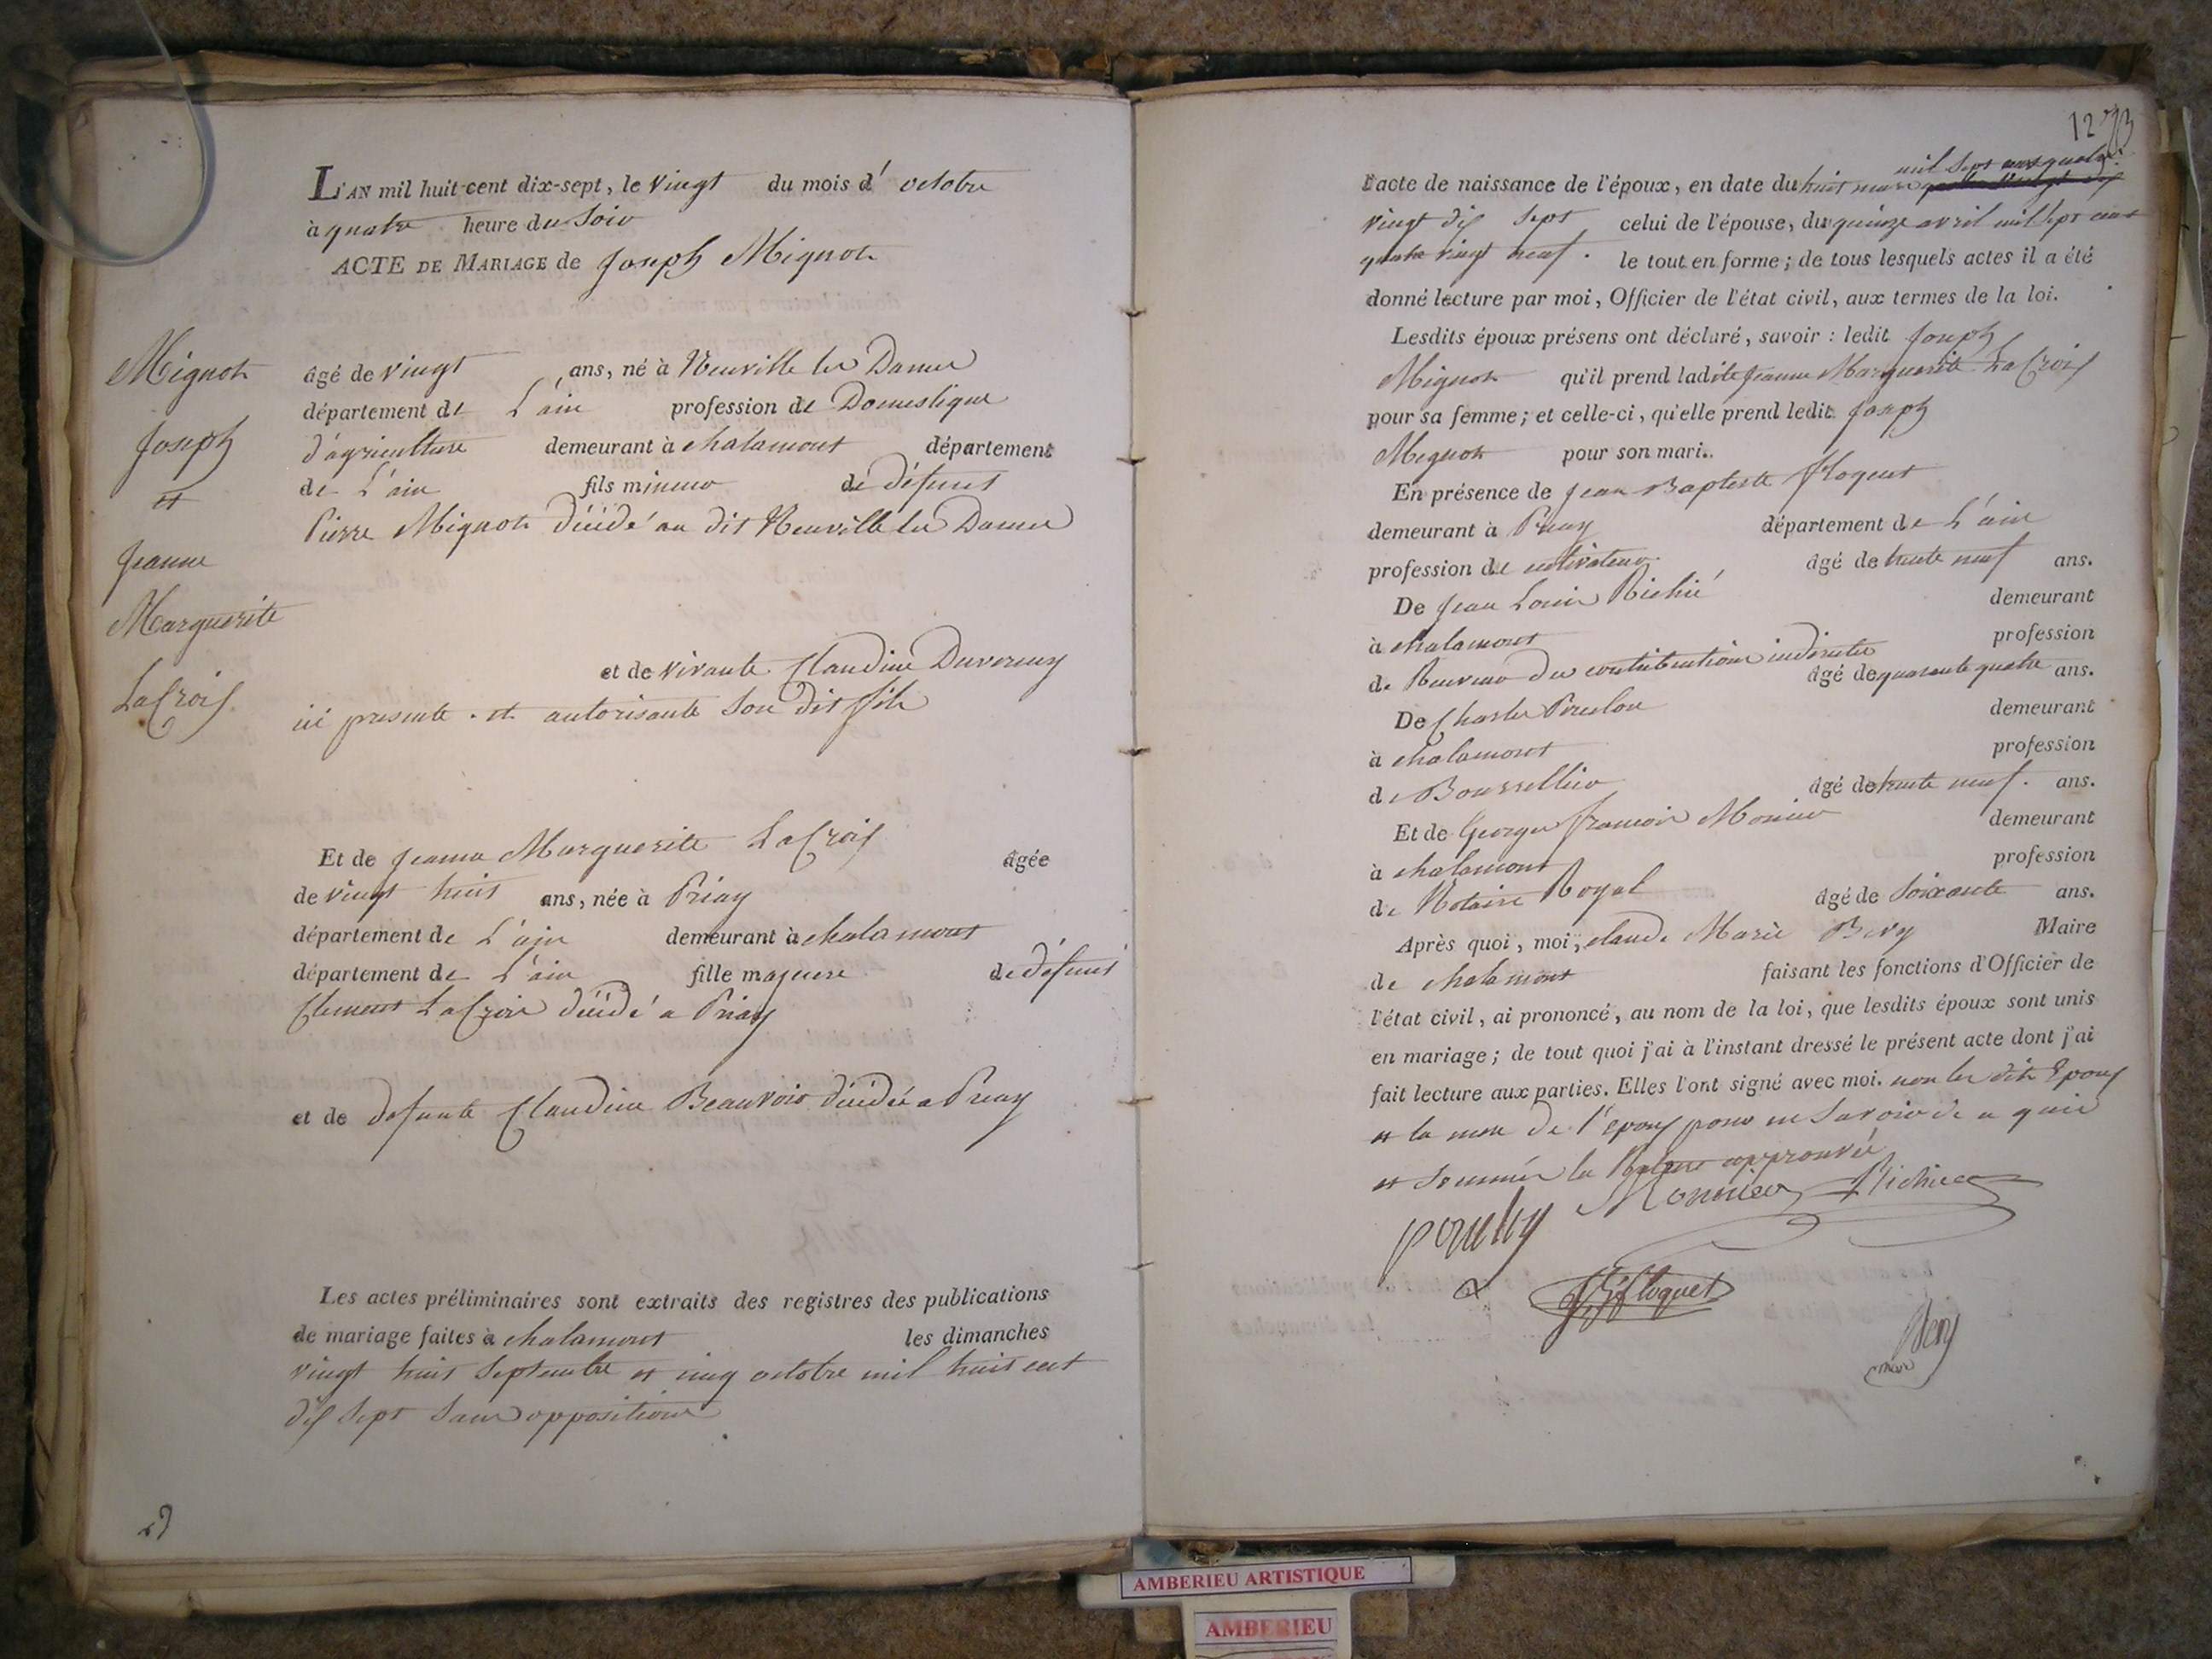 L'AN mil huit cent dix-sept, le vingt du mois d' octobre
à quatre heure du Soir
ACTE DE MARIAGE de Joseph Mignot
Mignot
Joseph
et
Jeanne
Marguerite
LaCroix
âgé de vingt ans, né à Neuville les Dames
département de L'ain profession de Domestique
d'agriculture demeurant à chalamont département
de L'ain fils mineur de défunt
Pierre Mignot décédé au dit Neuville les Dames
et de vivante Claudine Duvernay
ici presente . et autorisante Son dit fils
Et de Jeanne Marguerite LaCroix âgée
de vingt huit ans, née à Priay
département de L'ain demeurant à chalamont
département de L'ain fille majeure de défunt
Clement LaCroix décédé a Priay
et de defunte Claudine Beauvoir décédée a Priay
Les actes préliminaires sont extraits des registres des publications
de mariage faites à chalamont les dimanches
vingt huit Septembre et cinq octobre mil huit cent
dix Sept Sans opposition
1273
mil Sept cens quatre
L'acte de naissance de l'époux, en date du huit mars
vingt dix Sept celui de l'épouse, du quinze avril mil Sept cent
quatre vingt neuf . le tout en forme ; de tous lesquels actes il a été
donné lecture par moi, Officier de l'état civil, aux termes de la loi.
Lesdits époux présens ont déclaré, savoir : ledit Joseph
Mignot qu'il prend ladite Jeanne Marguerite LaCroix
pour sa femme ; et celle-ci, qu'elle prend ledit Joseph
Mignot pour son mari.
En présence de Jean Baptiste floquet
demeurant à Priay département de L'ain
profession de cultivateur âgé de trente neuf ans.
De Jean Louis Richié demeurant
à chalamont profession
de Receveur des contributions indirectes âgé de quarante quatre ans.
De Charles demeurant
à chalamont profession
de Bourrellier âgé de trente neuf . ans.
Et de George francois Monier demeurant
à chalamont profession
de Notaire Royal âgé de Soixante ans.
Après quoi, moi, claude Marie Bevy Maire
de chalamont faisant les fonctions d'Officier de
l'état civil, ai prononcé, au nom de la loi, que lesdits époux sont unis
en mariage ; de tout quoi j'ai à l'instant dressé le présent acte dont j'ai
fait lecture aux parties. Elles l'ont signé avec moi. non les dits Epoux
et la mere de l'Epoux pour ne Savoir de ce quis
et Sommés la Rature approuvée
Monnier Richié
JB floquet
Bevy
maire
AMBERIEU ARTISTIQUE
AMBERIEU